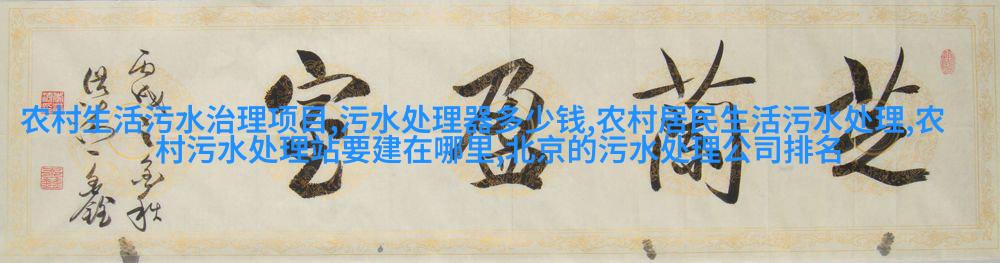 农村生活污水治理项目,污水处理器多少钱,农村居民生活污水处理,农
村污水处理站要建在哪里,北京的污水处理公司排名
芝蘭盈室
丙戌之金秋